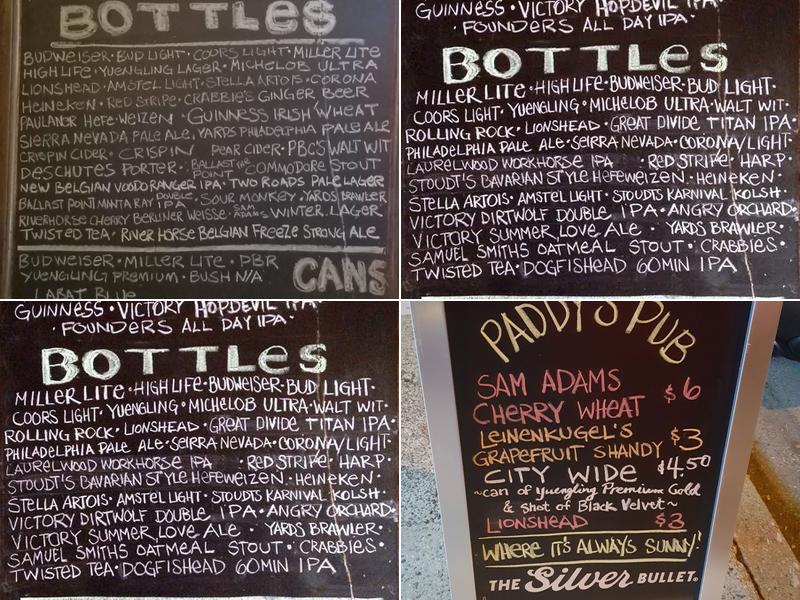 BOTTLES
BUDWEISER · BUD LIGHT · COORS LIGHT · MILLER LITE
HIGH LIFE · YUENGLING LAGER · MICHELOB ULTRA
LIONSHEAD · AMSTEL LIGHT · STELLA ARTOIS · CORONA
HEINEKEN · RED STRIPE · CRABBIE'S GINGER BEER
PAULANER HEFE-WEIZEN · GUINNESS IRISH WHEAT
SIERRA NEVADA PALE ALE, YARDS PHILADELPHIA PALE ALE
CRISPIN CIDER · CRISPIN PEAR CIDER · PBC'S WALT WIT
DESCHUTES PORTER · BALLAST POINT COMMODORE STOUT
NEW BELGIAN VOODO RANGER IPA · TWO ROADS PALE LAGER
BALLAST POINT MANTA RAY DOUBLE IPA · SOUR MONKEY · YARDS BRAWLER
RIVERHORSE CHERRY BERLINER WEISSE · SAM ADAMS WINTER LAGER
TWISTED TEA · RIVER HORSE BELGIAN FREEZE STRONG ALE
BUDWEISER · MILLER LITE · PBR
YUENGLING PREMIUM · BUSH N/A
CANS
LABAT BLUE
GUINNESS · VICTORY HOPDEVIL IPA
· FOUNDERS ALL DAY IPA ·
BOTTLES
MILLER LITE · HIGH LIFE · BUDWEISER · BUD LIGHT ·
COORS LIGHT · YUENGLING · MICHELOB ULTRA · WALT WIT ·
ROLLING ROCK · LIONSHEAD · GREAT DIVIDE TITAN IPA ·
PHILADELPHIA PALE ALE · SEIRRA NEVADA · CORONA/LIGHT ·
LAURELWOOD WORKHORSE IPA · RED STRIPE · HARP ·
STOUDT'S BAVARIAN STYLE HEFEWEIZEN · HEINEKEN ·
STELLA ARTOIS · AMSTEL LIGHT · STOUDTS KARNIVAL KOLSH ·
VICTORY DIRTWOLF DOUBLE IPA · ANGRY ORCHARD ·
VICTORY SUMMER LOVE ALE · YARDS BRAWLER ·
SAMUEL SMITHS OATMEAL STOUT · CRABBIES ·
TWISTED TEA · DOGFISHEAD 60 MIN IPA
GUINNESS · VICTORY HOPDEVIL IPA
· FOUNDERS ALL DAY IPA ·
BOTTLES
MILLER LITE · HIGH LIFE · BUDWEISER · BUD LIGHT ·
COORS LIGHT · YUENGLING · MICHELOB ULTRA · WALT WIT ·
ROLLING ROCK · LIONSHEAD · GREAT DIVIDE TITAN IPA ·
PHILADELPHIA PALE ALE · SEIRRA NEVADA · CORONA/LIGHT ·
LAURELWOOD WORKHORSE IPA · RED STRIPE · HARP ·
STOUDT'S BAVARIAN STYLE HEFEWEIZEN · HEINEKEN ·
STELLA ARTOIS · AMSTEL LIGHT · STOUDTS KARNIVAL KOLSH ·
VICTORY DIRTWOLF DOUBLE IPA · ANGRY ORCHARD ·
VICTORY SUMMER LOVE ALE · YARDS BRAWLER ·
SAMUEL SMITHS OATMEAL STOUT · CRABBIES ·
TWISTED TEA · DOGFISHEAD 60 MIN IPA
PADDY'S PUB
SAM ADAMS
CHERRY WHEAT $6
LEINENKUGEL'S
GRAPEFRUIT SHANDY $3
CITY WIDE $4.50
~can of Yuengling Premium Gold
& shot of Black Velvet~
LIONSHEAD $3
WHERE IT'S ALWAYS SUNNY!
THE Silver BULLET.